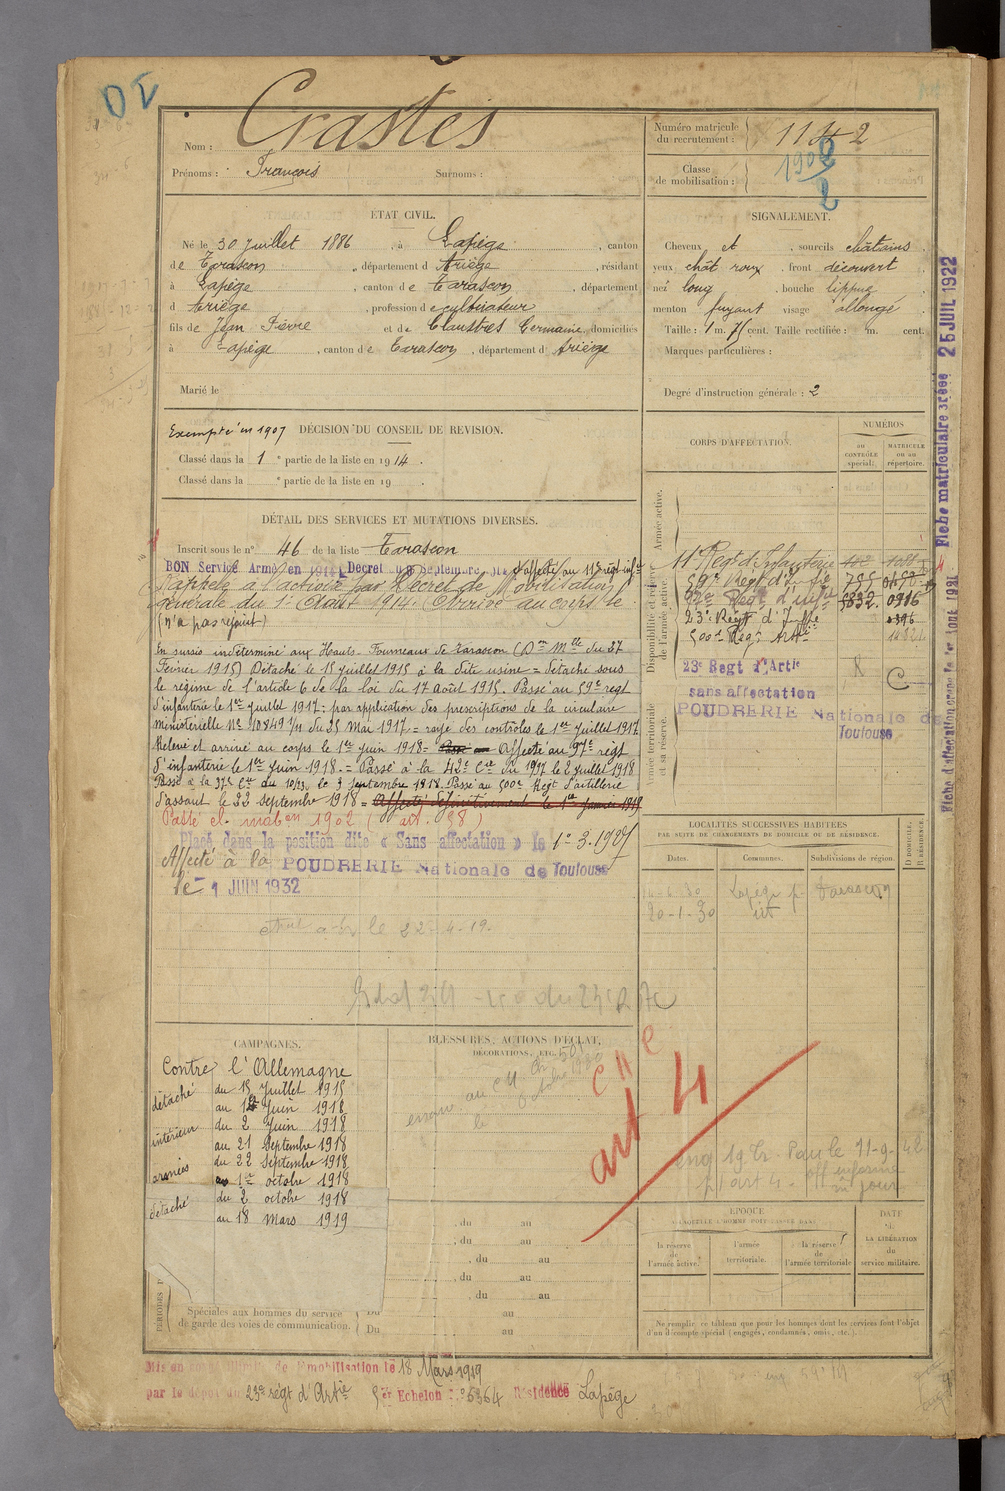 Nom : Crastes
Prénoms : François Surnoms :
Numéro matricule du recrutement : 1142
Classe de mobilisation : 1902
ÉTAT CIVIL.
Né le 30 Juillet 1886, à Lapège, canton
de Tarascon, département d Ariège, résidant
à Lapège, canton de Tarascon, département
d Ariège, profession de cultivateur
fils de Jean Pierre et de Claustres Germaine, domiciliés
à Lapège, canton de Tarascon, département d Ariège
Marié le
SIGNALEMENT.
Cheveux et, sourcils châtains
yeux chât roux, front découvert
nez long, bouche lippue
menton fuyant visage allongé
Taille : 1 m. 75 cent. Taille rectifiée : m. cent.
Marques particulières :
Degré d'instruction générale : 2
Exempté en 1907 DÉCISION DU CONSEIL DE REVISION.
Classé dans la 1e partie de la liste en 1914.
Classé dans la e partie de la liste en 19 .
DÉTAIL DES SERVICES ET MUTATIONS DIVERSES.
Inscrit sous le n° 46 de la liste Tarascon
BON Service Armé en 1914 Décret du 9 Septembre 914 affecté au 11e régt infie
Rappelé à l'activité par Décret de Mobilisation
générale du 1er Août 1914. Arrivé au corps le
(n'a pas rejoint)
En sursis indéterminé aux Hauts-Fourneaux de Tarascon (Don Mlle du 27
Février 1915) Détaché le 15 juillet 1915 à la dite usine = détaché sous
le régime de l'article 6 de la loi du 17 août 1915. Passé au 59e régt
d'infanterie le 1er Juillet 1917; par application des prescriptions de la circulaire
ministérielle N° 10849 1/11 du 25 Mai 1917 = rayé des contrôles le 1er Juillet 1917
Relevé et arrivé au corps le 1er Juin 1918 = Passé au Affecté au 97e régt
d'infanterie le 1er Juin 1918. = Passé à la 42e Cie du 1917 le 2 Juillet 1918
Passé à la 37e Cie du le 3 septembre 1918. Passé au 500e Régt d'artillerie
d'assaut le 22 septembre 1918 = Affecté définitivement le 1er Janvier 1919
Passé cl. mob en 1902 (art. 58)
Placé dans la position dite « Sans affectation » le 1e 3. 1927
Affecté à la POUDRERIE Nationale de Toulouse
le - 1 JUIN 1932
le 22-4-19.
CORPS D'AFFECTATION.
NUMÉROS
au CONTRÔLE spécial.
MATRICULE ou au répertoire.
Armée active.
Disponibilité et réserve de l'armée active.
Armée territoriale et sa réserve.
11e Regt d'Infanterie
59e Regt d'infie
97e Regt d'infie 5832. 0916
23e Regt d'Inffie 0396
500e Regt Artie
23e Regt d'Artie
sans affectation
POUDRERIE Nationale de
Toulouse
C
LOCALITÉS SUCCESSIVES HABITÉES
PAR SUITE DE CHANGEMENTS DE DOMICILE OU DE RÉSIDENCE.
Dates. Communes. Subdivisions de région. D DOMICILE. R RÉSIDENCE.
Lapège Tarascon
20-1-30
CAMPAGNES.
Contre l'Allemagne
détaché du 15 Juillet 1915
au 1er Juin 1918
intérieur du 2 Juin 1918
au 21 Septembre 1918
armées du 22 Septembre 1918
au 1er octobre 1918
détaché du 2 octobre 1918
au 18 Mars 1919
BLESSURES, ACTIONS D'ÉCLAT,
DÉCORATIONS, ETC.
art 4
, du au
, du au
, du au
, du au
, du au
Spéciales aux hommes du service
de garde des voies de communication.
Du au
Du au
ÉPOQUE
À LAQUELLE L'HOMME DOIT PASSER DANS
la réserve de l'armée active.
l'armée territoriale.
la réserve de l'armée territoriale
DATE
DE LA LIBÉRATION du service militaire.
Ne remplir ce tableau que pour les hommes dont les services font l'objet
d'un décompte spécial (engagés, condamnés, omis, etc.).
Mis en congé illimité de démobilisation le 18 Mars 1919
par le dépôt du 23e régt d'Artie 5er Echelon n° 6364 Résidence Lapège
Fiche matriculaire créée 25 JUIL 1922